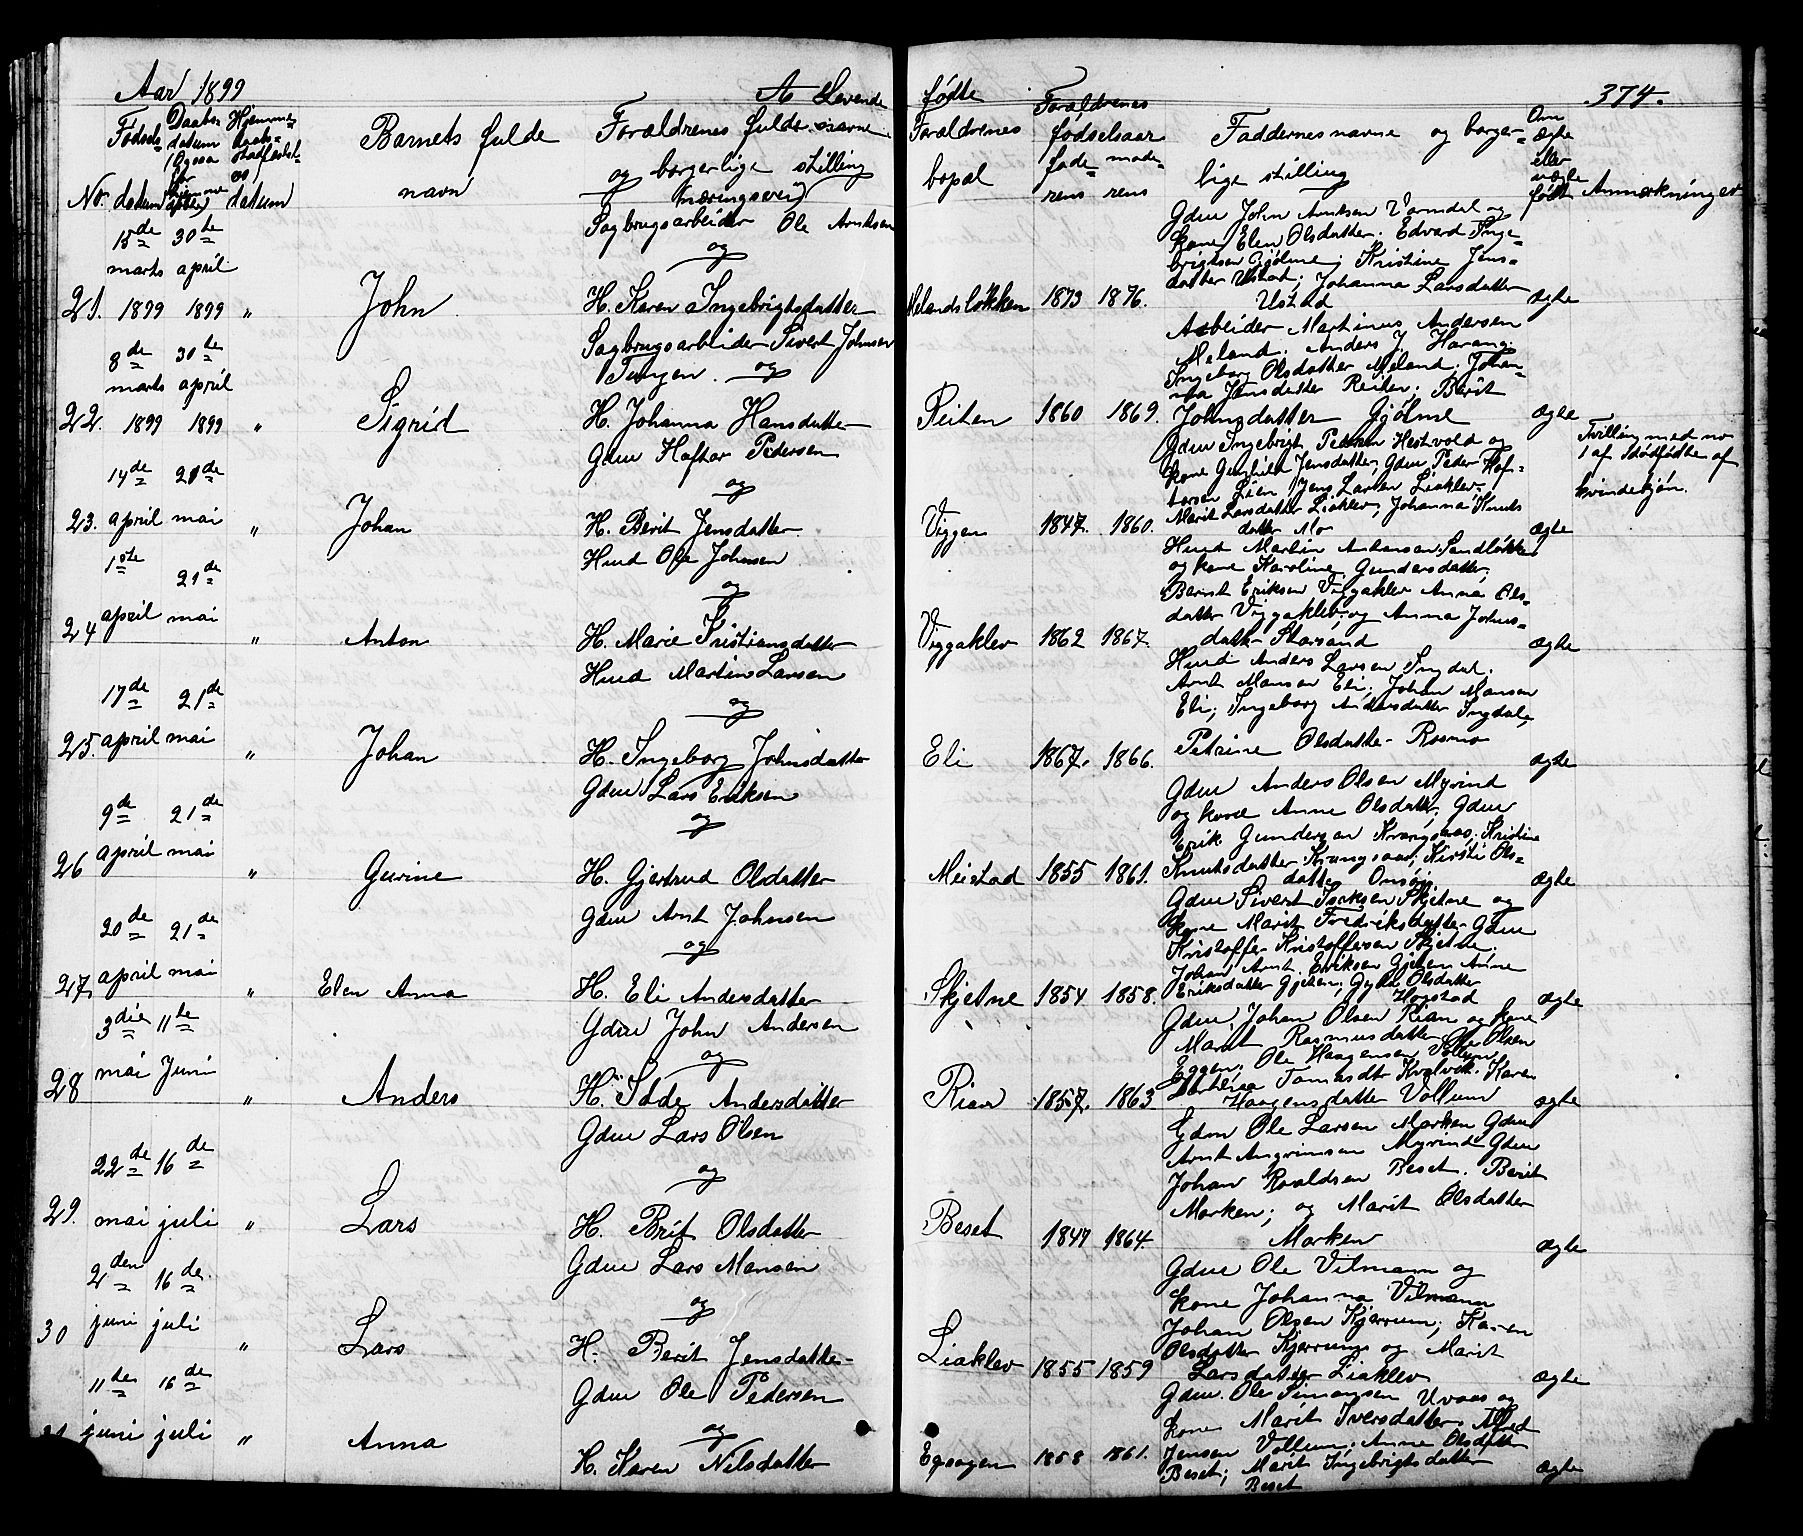 Aar 1899
A Levende
fødte
374.
Fødsels-
Nr. datum
Daabs-
datum
Hjemme-
daabs-
datum
Barnets fulde
navn
Forældrenes fulde navne
og borgerlige stilling
(næringsvei)
Forældrenes
bopæl
Forældrenes
fødselsaar
fade- mode-
rens rens
Faddernes navne og borger-
lige stilling
Om
ægte
eller
uægte
født
Anmærkninger
15de 30te
marts april
21. 1899 1899 "
John
Sagbrugsarbeider Ole Arntsen
og
H. Karen Ingebrigtsdatter
Melandsløkken 1873 1876.
Gdm John Arntsen Vormdal og
kone Elen Olsdatter. Edvard Inge-
brigtsen Gjølme; Kristine Jens-
datter Ustad; Johanna Larsdatter
Ustad
ægte
8de 30te
marts april
22. 1899 1899 "
Sigrid
Sagbrugsarbeider Sivert Johnsen
Tungen. og
H. Johanna Hansdatter
Reiten 1860 1869.
Arbeider Martinus Andersen
Meland. Anders J. Harang.
Ingeborg Olsdatter Meland. Johan-
na Jensdatter Reiten; Berit
Johnsdatter Gjølme
ægte
14de 21de
23. april mai "
Johan
Gdm Haftor Pedersen
og
H. Berit Jensdatter
Viggen 1847. 1860.
Gdm Ingebrigt Pedersen Hestvold og
kone Gunhild Jensdatter; Gdm Peder Haf-
torsen Lien Jens Larsen Liaklev.
Marit Larsdatter Liaklev, Johanna Knuts
datter Mo
ægte
Tvilling med no
1 af dødfødte af
kvindekjøn.
1ste
21de
24 april mai "
Anton
Husd Ole Johnsen
og
H. Marie Kristiansdatter
Viggaklev 1862 1867.
Husd Martin Antonsen Sandløkken
og kone Karoline Gundersdatter.
Bernt Eriksen Viggaklev Anna Ols-
datter Viggaklev og Anna Johns-
datter Storsand
ægte
17de 21de
25. april mai "
Johan
Husd Martin Larsen
og
H. Ingeborg Johnsdatter
Eli 1867. 1866.
Husd Anders Larsen Ingdal.
Arnt Mansen Eli, Johan Mansen
Eli; Ingeborg Andersdatter Ingdal,
Petrine Olsdatter
ægte
9de 21de
26 april mai "
Gurine
Gdm Lars Eriksen
og
H. Gjertrud Olsdatter
Meistad 1855 1861.
Gdm Anders Olsen Myrind
og kone Anne Olsdatter, Gdm
Erik Gundersen Krangsaas; Kristine
Knutsdatter Krangsaas; Kirsti Ols-
datter Onsøj.
ægte
20de 21de
27, april mai "
Elen Anna
Gdm Arnt Johnsen
og
H. Eli Andersdatter
Skjetne 1854 1858.
Gdm Sivert Isaksen Skjetne og
kone Marit Fredriksdatter. Gdm
Kristoffer Kristoffersen Skjetne.
Johan Arnt. Eriksen Gjeten Anne
Eriksdatter Gjeten; Olsdatter
Hogstad
ægte
3die 11te
28 mai Juni "
Anders
Gdm John Andersen
og
H. Andersdatter
Rian 1857. 1863.
Gdm Johan Olsen Rian og kone
Marit Rasmusdatter Ole Olsen
Eggen. Ole Haagensen Vollum,
Tomasdtr Kvalvik. Karen
Haagensdatter Vollum
ægte
22de 16de
29. mai juli "
Lars
Gdm Lars Olsen
og
H. Brit Olsdatter
Beset 1847 1864.
Gdm Ole Larsen Morken Gdm
Arnt Angrimsen Myrind Gdm
Johan Roaldsen Beset. Berit
Morken; og Marit Olsdatter
Morken
ægte
2den 16de.
30 juni juli "
Lars
Gdm Lars Mansen
og
H. Berit Jensdatter
Liaklev 1855 1859
Gdm Ole Vilmann og
kone Johanna Vilmann
Johan Olsen Kjerrum; Karen
Olsdatter Kjerrum og Marit
Larsdatter Liaklev
ægte
11de 16de
juni juli "
Anna
Gdm Ole Pedersen
og
H. Karen Nilsdatter
1858 1861.
Gdm. Ole Simonsen Uvaas og
kone Marit Iversdatter.
Jensen Vollum. Anne Olsdatter
Beset; Marit Ingebrigtsdatter
Beset
ægte